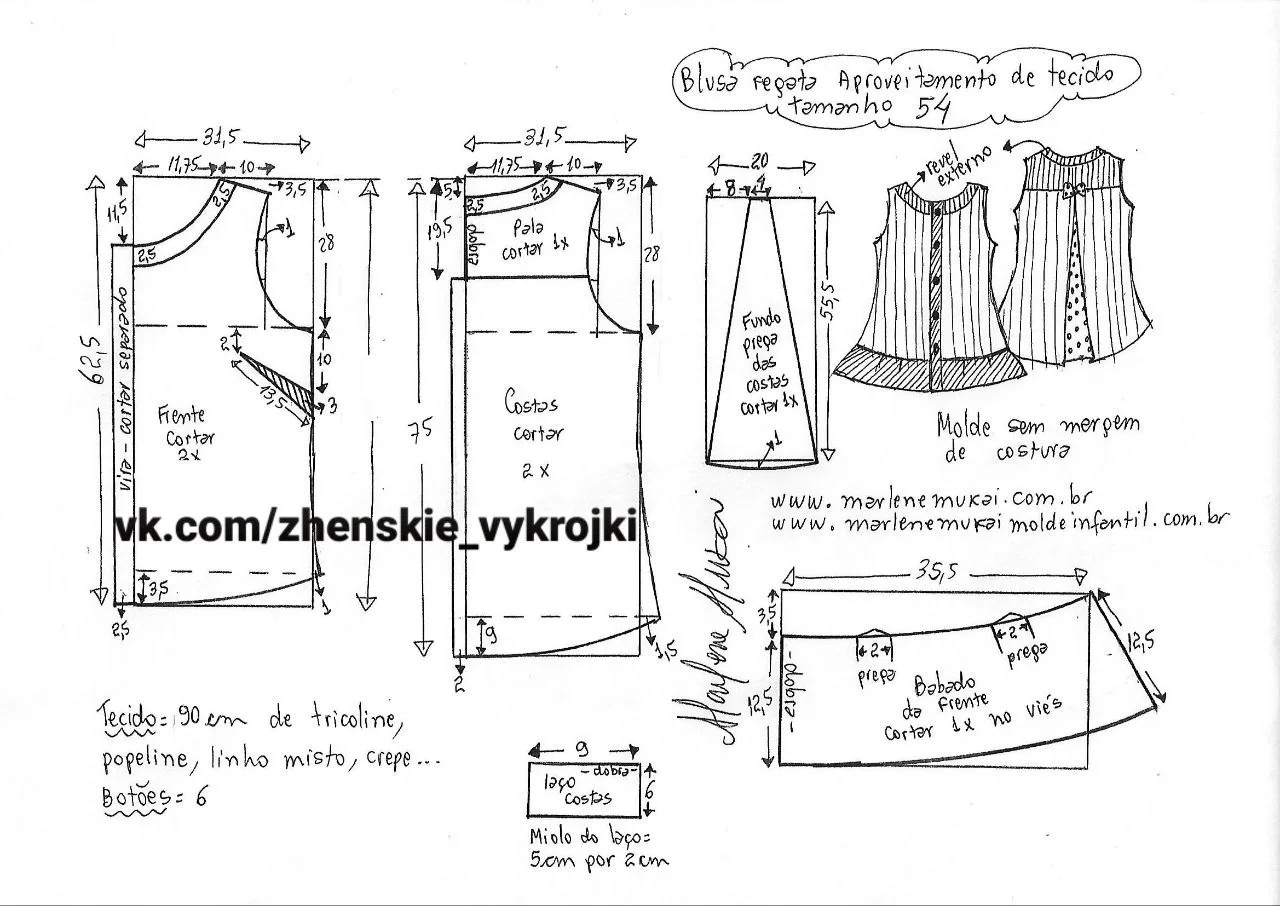 Blusa regata Aproveitamento de tecido
tamanho 54
31,5
11,75
10
3,5
11,5
2,5
2,5
1
28
62,5
2
10
13,5
3
Frente
cortar
2x
3,5
1
2,5
31,5
11,75
10
3,5
2,5
2,5
19,5
dobra
Pala
cortar 1x
1
28
75
Costas
cortar
2x
9
1,5
2
20
8
4
55,5
Fundo
prega
das
costas
cortar 1x
1
revel
externo
Molde sem margem
de costura
www.marlenemukai.com.br
www.marlenemukaimoldeinfantil.com.br
vk.com/zhenskie_vykrojki
Marlene Mukai
35,5
3,5
12,5
-dobra-
2
prega
2
prega
12,5
Babado
da Frente
cortar 1x no viés
Tecido= 90cm de tricoline,
popeline, linho misto, crepe...
Botões= 6
9
-dobra-
laço
costas
6
Miolo do laço=
5cm por 2cm